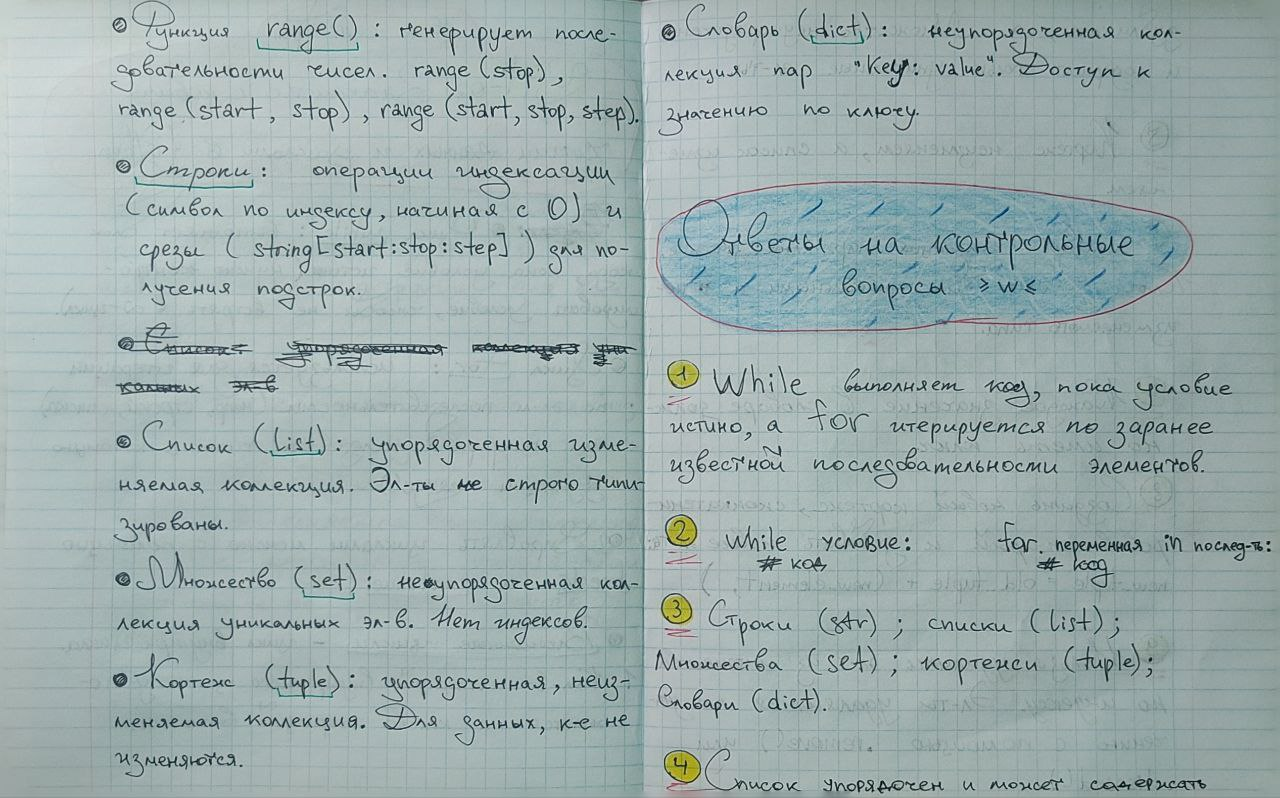 Функция range() : генерирует после-
довательности чисел. range (stop),
range (start, stop), range (start, stop, step).
Строки: операции индексации
(символ по индексу, начиная с 0) и
срезы ( string [start:stop:step] ) для по-
лучения подстрок.
Список: упорядоченная коллекция уни
кальных эл-в
Список (list): упорядоченная изме-
няемая коллекция. Эл-ты не строго типи-
зированы.
Множество (set): неупорядоченная кол-
лекция уникальных эл-в. Нет индексов.
Кортеж (tuple): упорядоченная, неиз-
меняемая коллекция. Для данных, к-е не
изменяются.
Словарь (dict): неупорядоченная кол-
лекция пар "Key: value". Доступ к
значению по ключу.
Ответы на контрольные
вопросы >w<
1 While выполняет код, пока условие
истино, а for итерируется по заранее
известной последовательности элементов.
2 While условие: for переменная in послед-ть:
# код # код
3 Строки (str) ; списки (list) ;
Множества (set) ; кортежи (tuple);
Словари (dict).
4 Список упорядочен и может содержать